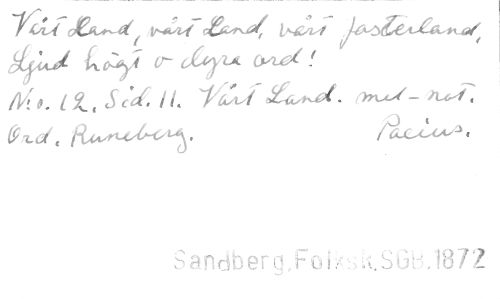 Vårt Land, vårt Land, vårt fosterland,
Ljud högt o dyra ord!
N:o. 12. Sid. 11. Vårt Land. mel-not.
Ord. Runeberg. Pacius.
Sandberg. Folksk. SGB. 1872